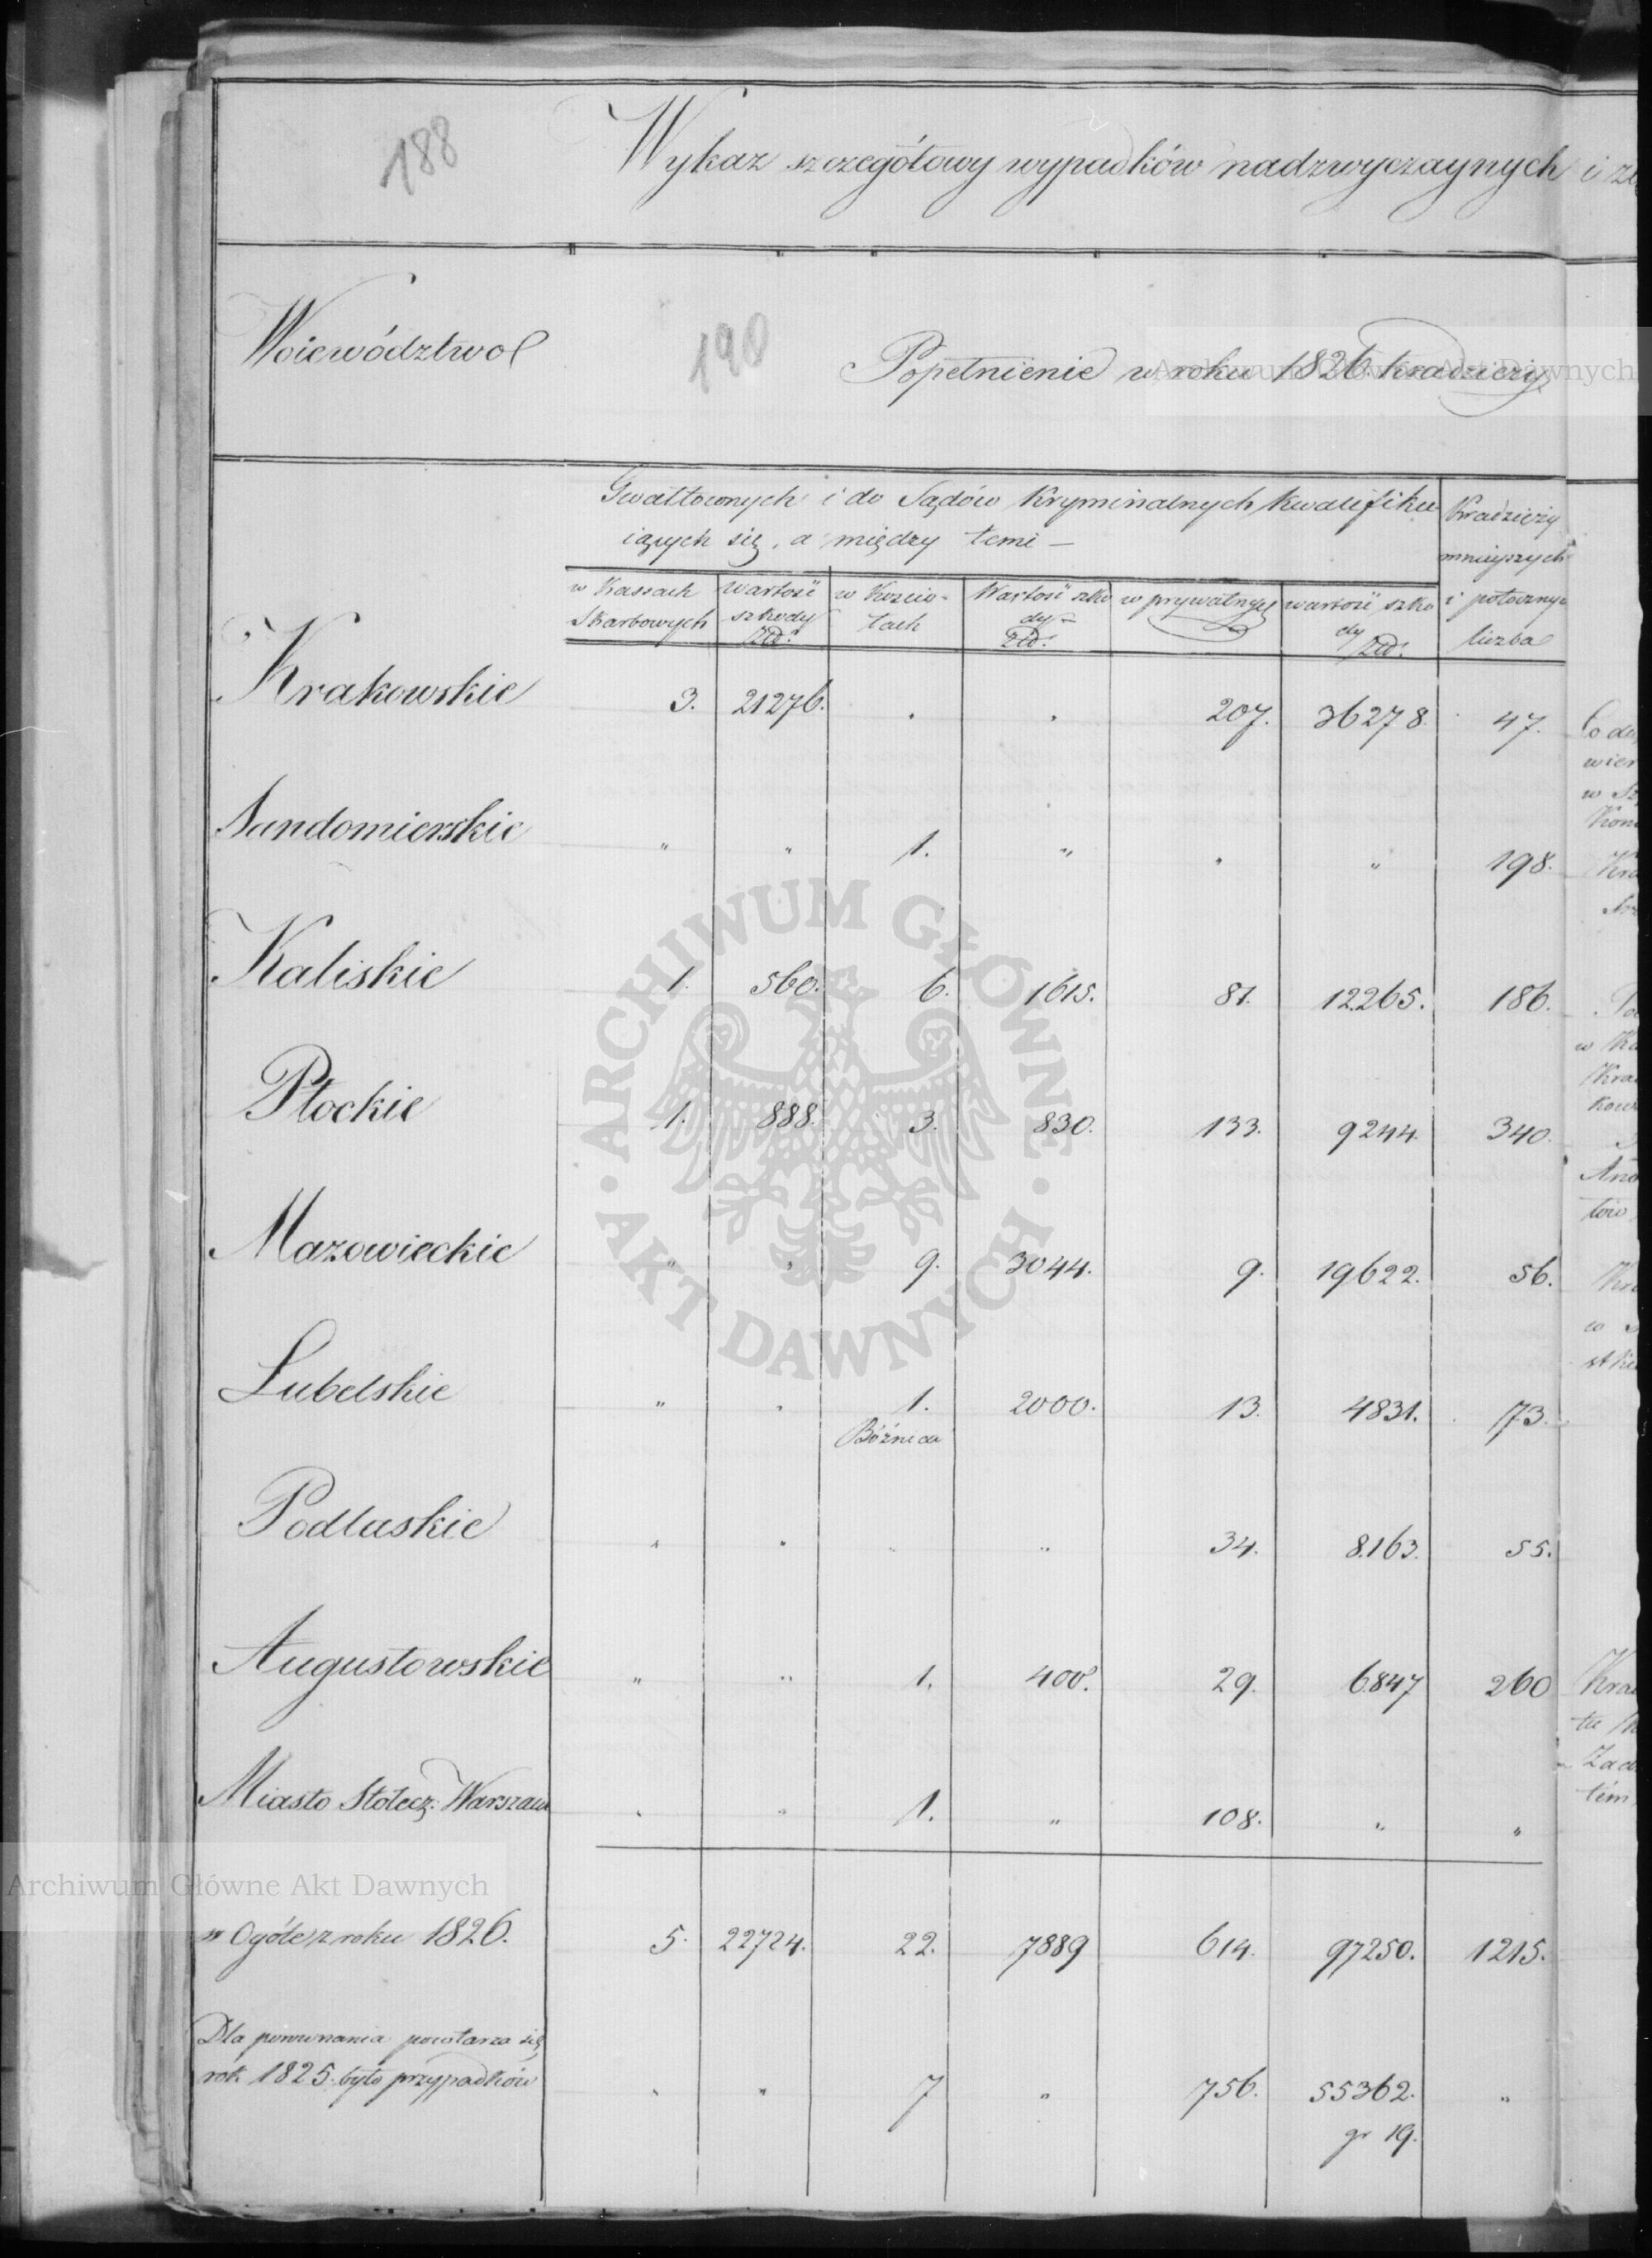 188
Wykaz szczegółowy wypadków nadzwyczaynych i
Woiewództwo
190
Popełnienie w roku 1826 kradzieży
Gwałtownych i do Sądów Kryminalnych kwalifiku
iących się, a między temi —
Kradzieży
mnieyszych
i potoczny
liczba
w Kassach
Skarbowych
wartość
szkody
Złd.
w Koscio-
łach
Wartość szko
dy
Złd.
w prywatnych
wartość szko
dy
Złd.
Krakowskie 3. 21276. . . 207. 36278. 47.
Sandomierskie " " 1. " " " 198.
Kaliskie 1. 560. 6. 1615. 81. 12265. 186.
Płockie 1. 888. 3. 830. 133. 9244. 340.
Mazowieckie " " 9. 3044. 9. 19622. 56.
Lubelskie " " 1. 2000. 13. 4831. 73.
Bóżnica
Podlaskie " " " " 34. 8.163. 55.
Augustowskie " " 1. 400. 29. 6847 260
Miasto Stołecz: Warszawa " " 1. " 108. " "
w Ogóle z roku 1826. 5. 22724. 22. 7889 614. 97250. 1215.
Dla porownania powtarza się
rok 1825. było przypadków " " 7 " 756. 55362. "
gr 19.
ARCHIWUM GŁÓWNE
AKT DAWNYCH
Archiwum Główne Akt Dawnych
Archiwum Główne Akt Dawnych